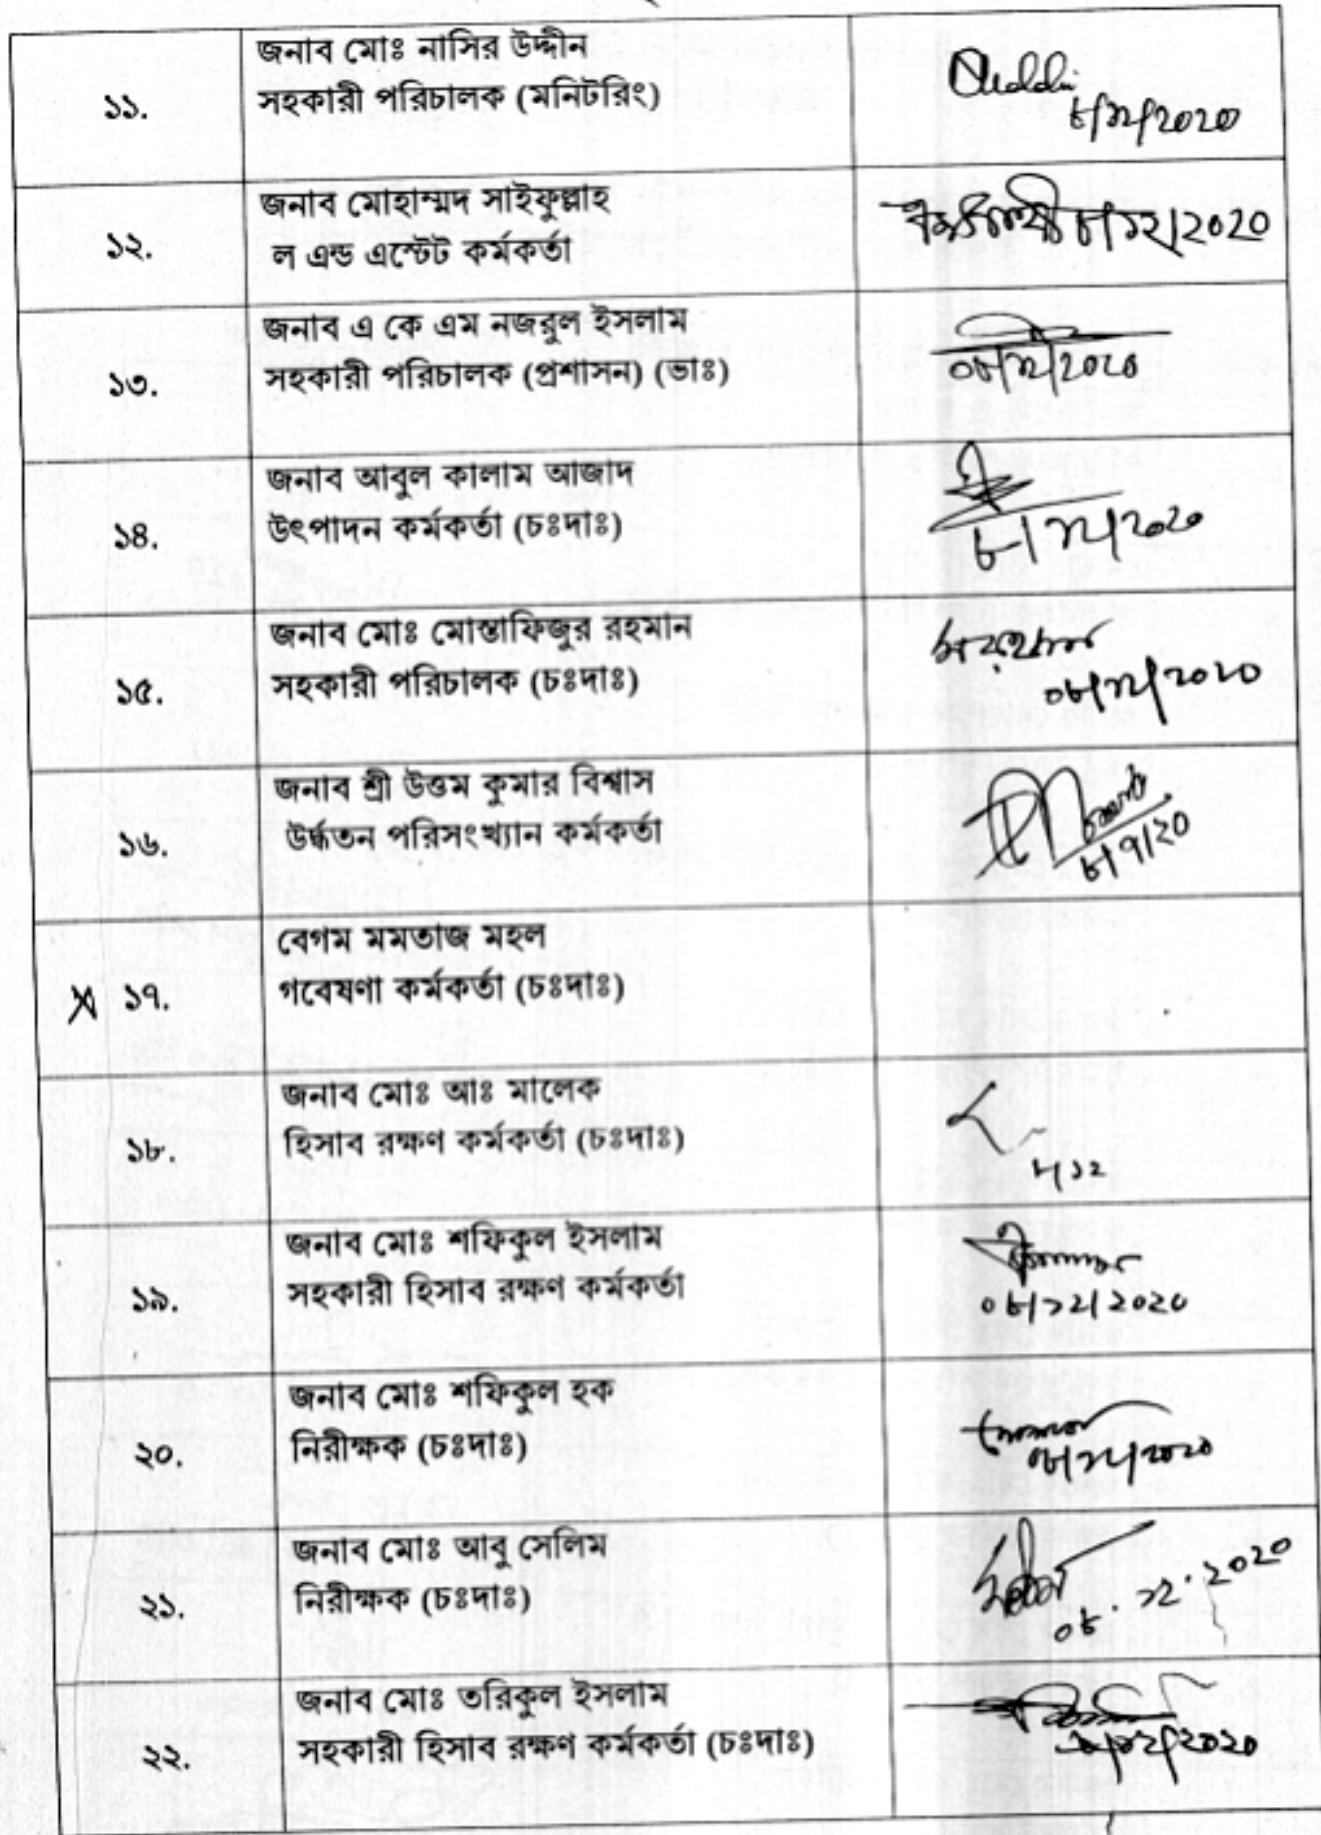 ১১.
জনাব মোঃ নাসির উদ্দীন
সহকারী পরিচালক (মনিটরিং)
৮/১২/২০২০
১২.
জনাব মোহাম্মদ সাইফুল্লাহ
ল এন্ড এস্টেট কর্মকর্তা
৮/১২/২০২০
১৩.
জনাব এ কে এম নজরুল ইসলাম
সহকারী পরিচালক (প্রশাসন) (ভাঃ)
০৮/১২/২০২০
১৪.
জনাব আবুল কালাম আজাদ
উৎপাদন কর্মকর্তা (চঃদাঃ)
৮/১২/২০২০
১৫.
জনাব মোঃ মোস্তাফিজুর রহমান
সহকারী পরিচালক (চঃদাঃ)
০৮/১২/২০২০
১৬.
জনাব শ্রী উত্তম কুমার বিশ্বাস
উর্দ্ধতন পরিসংখ্যান কর্মকর্তা
১৭.
বেগম মমতাজ মহল
গবেষণা কর্মকর্তা (চঃদাঃ)
১৮.
জনাব মোঃ আঃ মালেক
হিসাব রক্ষণ কর্মকর্তা (চঃদাঃ)
৮/১২
১৯.
জনাব মোঃ শফিকুল ইসলাম
সহকারী হিসাব রক্ষণ কর্মকর্তা
০৮/১২/২০২০
২০.
জনাব মোঃ শফিকুল হক
নিরীক্ষক (চঃদাঃ)
০৮/১২/২০২০
২১.
জনাব মোঃ আবু সেলিম
নিরীক্ষক (চঃদাঃ)
০৮.১২.২০২০
২২.
জনাব মোঃ তরিকুল ইসলাম
সহকারী হিসাব রক্ষণ কর্মকর্তা (চঃদাঃ)
৮/১২/২০২০